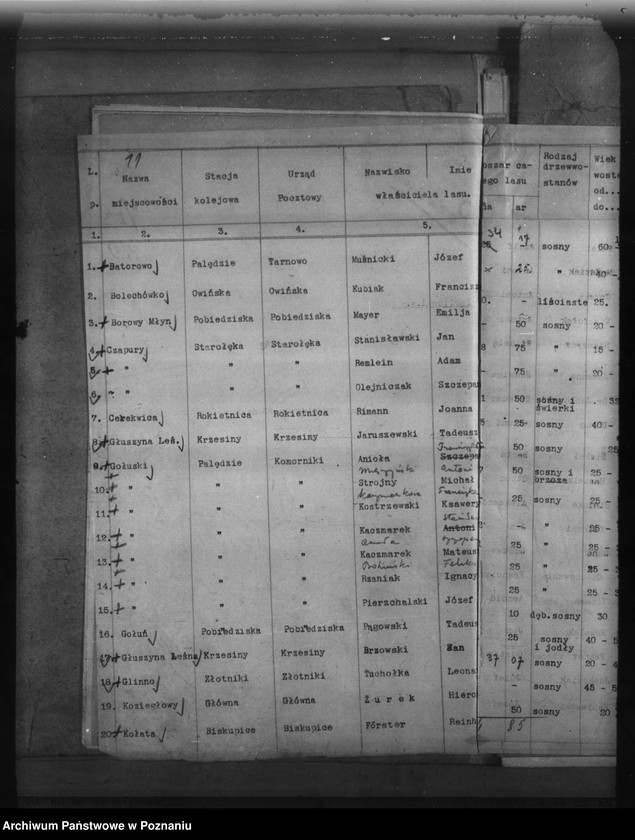 11
L. Nazwa Stacja Urząd Nazwisko Imie oszar ca- Rodzaj Wiek
p. miejscowości kolejowa Pocztowy właściciela lasu. ego lasu drzewwo- wost
stanów od...
ar do...
1. 2. 3. 4. 5.
34 17
1. Batorowo Palędzie Tarnowo Muśnicki Józef sosny 60-
2. Bolechówko Owińska Owińska Kubiak Francisz " 40-
3. Borowy Młyn Pobiedziska Pobiedziska Mayer Emilja - liściaste 25.
4. Czapury Starołęka Starołęka Stanisławski Jan 50 sosny 20 -
5. " " " Remlein Adam 75 " 15 -
6. " " " Olejniczak Szczepan 75 " 20 -
7. Cerekwica Rokietnica Rokietnica Rimann Joanna 50 sosny i świerki
8. Głuszyna Leś. Krzesiny Krzesiny Jaruszewski Tadeusz 25 sosny 40 -
9. Gołuski Palędzie Komorniki Anioła Szczepa 50 sosny 25
10. " " " Strojny Michał 50 sosny i brzoza 25 -
Kaczmarkowa Franciszka
11. " " " Kostrzewski Ksawery 25 sosny 25 -
12. " " " Kaczmarek Antoni - " 25 -
13. " " " Kaczmarek Mateus 25 " 25 -
14. " " " Rzaniak Ignacy 25 " 25 -
15. " " " Pierzchalski Józef 25 " 25 -
16. Gołuń Pobiedziska Pobiedziska Pągowski Tadeus 10 dęb.sosny 30
17. Głuszyna Leśna Krzesiny Krzesiny Brzowski Jan 25 sosny i jodły 40 -
18. Glinno Złotniki Złotniki Tuchołka Leona 37 07 sosny 20 -
19. Koziegłowy Główna Główna Żurek Hiero - sosny 45 -
20. Kołata Biskupice Biskupice Förster Reinh 50 sosny 20
85
Archiwum Państwowe w Poznaniu